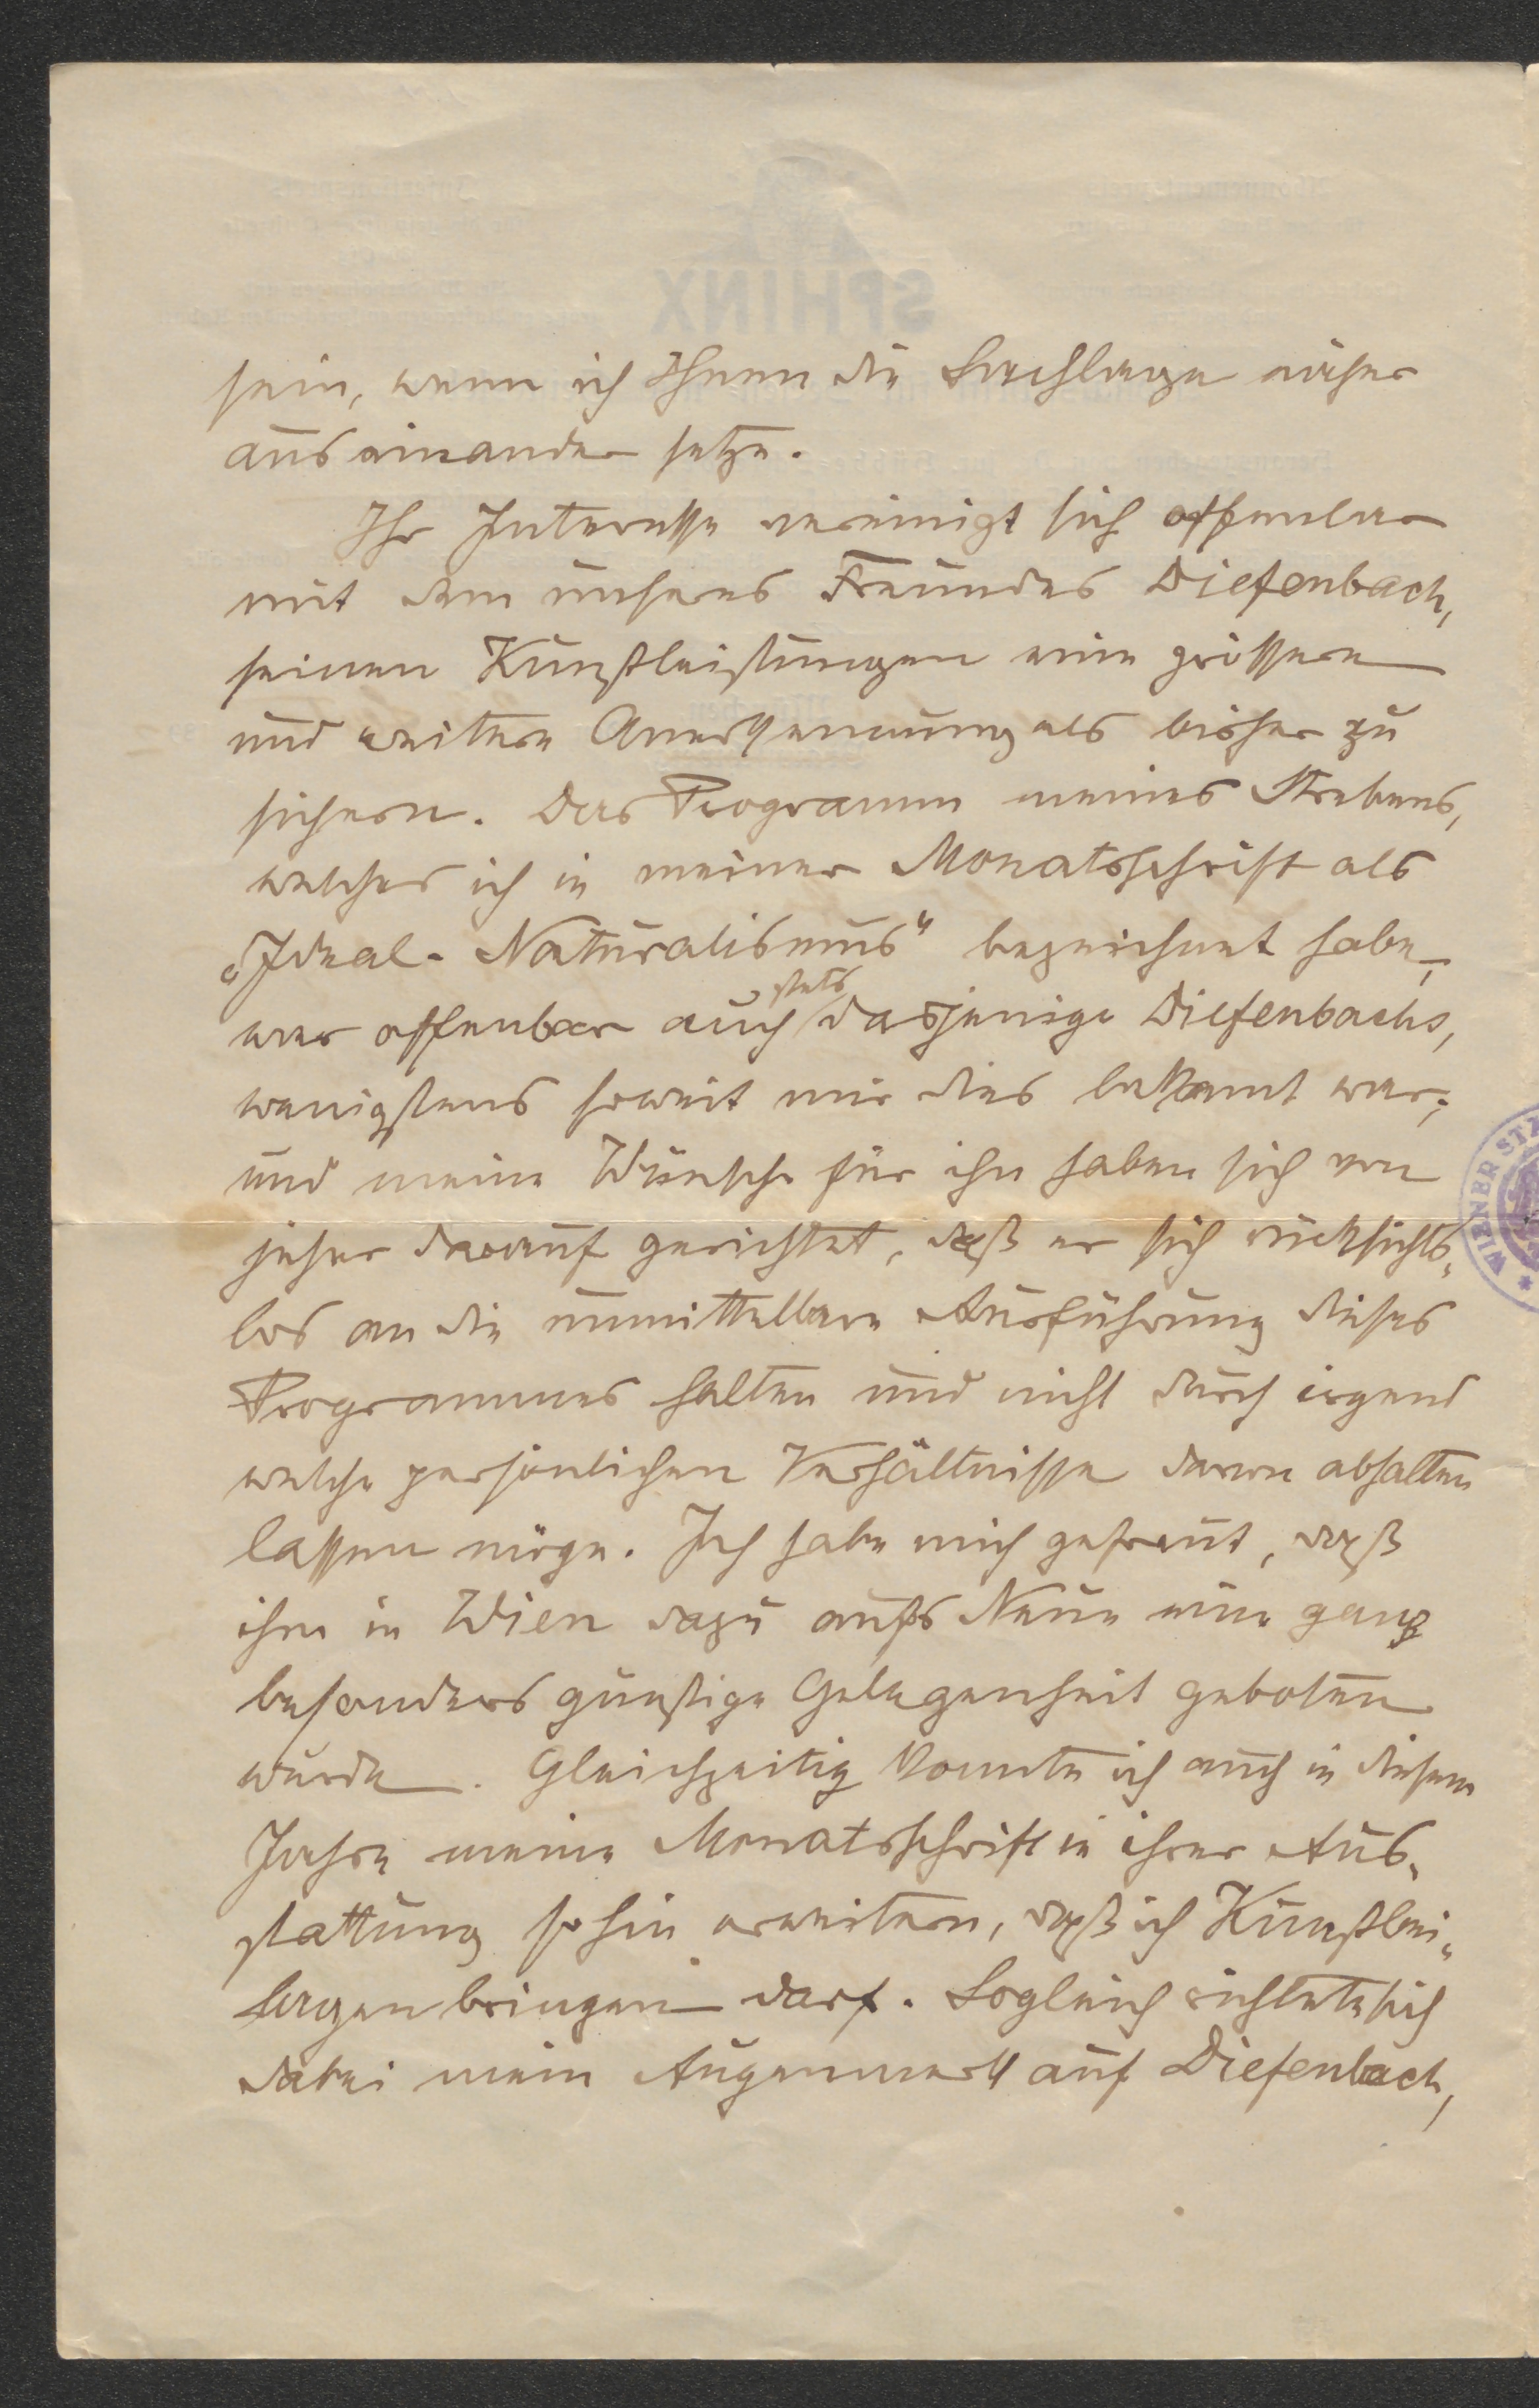 sein, wenn ich Ihnen die Sachlage näher
auseinander setze.
Ihr Interesse vereinigt sich offenbar
mit dem unseres Freundes Diefenbach,
seinen Kunstleistungen eine grössere
und weitere Anerkennung als bisher zu
sichern. Das Programm meines Strebens,
welches ich in meiner Monatsschrift als
„Ideal-Naturalismus" bezeichnet habe,
war offenbar auch stets dasjenige Diefenbachs,
wenigstens soweit mir dies bekannt war;
und meine Wünsche für ihn haben sich von
jeher darauf gerichtet, daß er sich rücksichts-
los an die unmittelbare Ausführung dieses
Programmes halten und nicht durch irgend
welche persönlichen Verhältnisse davon abhalten
lassen möge. Ich habe mich gefreut, daß
ihm in Wien dazu aufs Neue eine ganz
besonders günstige Gelegenheit geboten
wurde. Gleichzeitig konnte ich auch in diesem
Jahre meine Monatsschrift in ihrer Aus-
stattung so hin erweitern, daß ich Kunstbei-
lagen bringen darf. Sogleich richtete sich
dabei mein Augenmerk auf Diefenbach,
SPHINX
WIENER